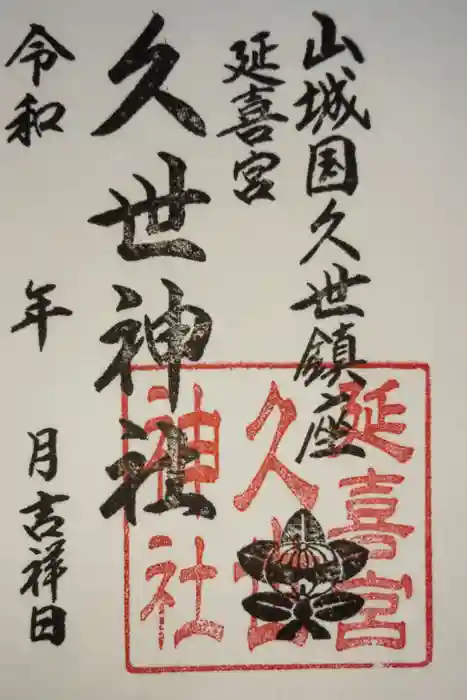 山城国久世鎮座
延喜宮
久世神社
令和 年 月吉祥日
延喜宮
久世
神社